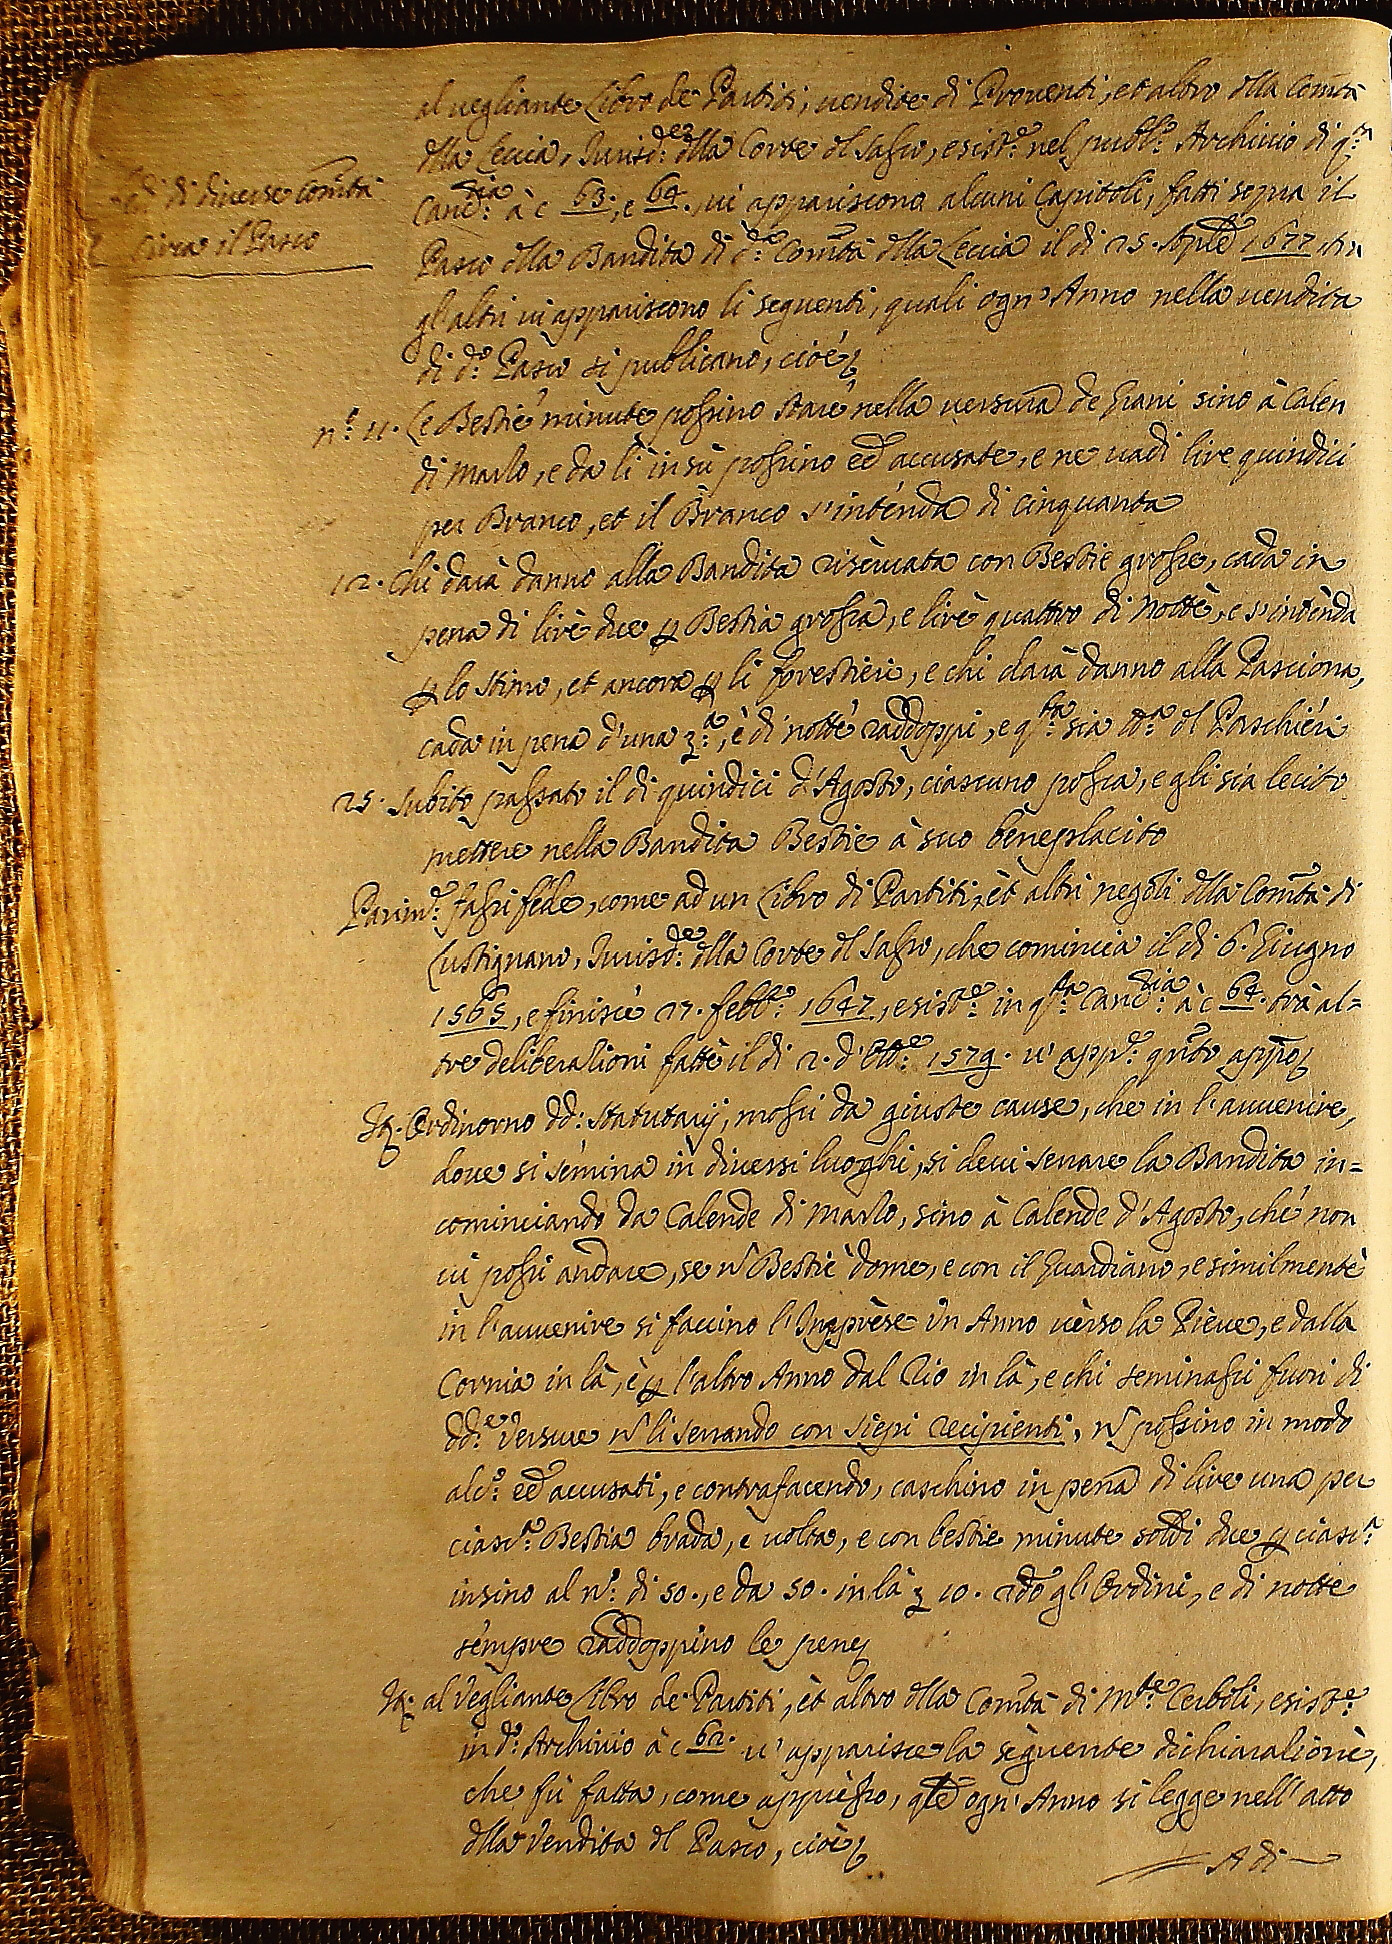 al vegliante Libro de Partiti, vendite di Proventi, et altro dlla Comtà
dlla Leccia, Jurisd:ne dlla Corte dl Sasso, esist:e nel pubb:o Archivio di q:a
di diverse Comtà
circa il Pasco
Canc:ria à c 63., e 64., vi appariscono alcuni Capitoli, fatti sopra il
Pasco dlla Bandita di d:a Comtà dlla Leccia il di 25. Aple 1677 tra
gl'altri vi appariscono li seguenti, quali ogn'Anno nella vendita
di d:o Pasco si publicano, cioè
n:o 11. Le Bestie minute possino stare nella versura de Grani sino à Calen
di Marzo, e da lì in sù possino eē accusate, e ne vadi lire quindici
per Branco, et il Branco s'intenda di cinquanta
12. Chi darà danno alla Bandita riservata con Bestie grosse, cada in
pena di lire due p Bestia grossa, e lire quattro di notte, e s'intenda
p lo stimo, et ancora p li forestieri, e chi darà danno alla Pasciona,
cada in pena d'una z:a, e di notte raddoppi, e q:ta sia tt:a dl Paschieri
25. Subito passato il di quindici d'Agosto, ciascuno possa, e gli sia lecito
mettere nella Bandita Bestie à suo beneplacito
Parim:e fassi fede, come ad un Libro di Partiti, et altri negozi dlla Comtà di
Lustignano, Jurisd:ne dlla Corte dl Sasso, che comincia il di 6. Giugno
1565, e finisce 27. febb:o 1647, esist:e in q:ta Canc:ria à c 64. trà al=
tre deliberazioni fatte il di 2. d'Ott:e 1579. v' app:e qnto appō
It. Ordinorno dd: Statutarij, mossi da giuste cause, che in l'avvenire,
dove si semina in diversi luoghi, si devi serrare la Bandita in=
cominciando da Calende di Marzo, sino à Calende d'Agosto, che non
vi possi andare, se ñ Bestie dome, e con il Guardiano, e similmente
in l'avvenire si faccino l'Imprese Un Anno verso la Pieve, e dalla
Cornia in là, e p l'altro Anno dal Rio in là, e chi seminassi fuori di
dd:e Versure ñ li serrando con siepi recipienti, ñ possino in modo
alc:o eē accusati, e contrafacendo, caschino in pena di lire una per
ciasc:a Bestia brada, e volta, e con bestie minute soldi due p ciasc:a
insino al n:o di 50., e da 50. in là z 10. rdo gl'Ordini, e di notte
sempre raddoppino le pene
It: al Vegliante Libro de Partiti, et altro dlla Comtà di M:te Cerboli, esist:e
in d:o Archivio à c 62. v' apparisce la seguente dichiarazione,
che fù fatta, come appresso, qle ogn'Anno si legge nell'atto
dlla Vendita dl Pasco, cioè
A di